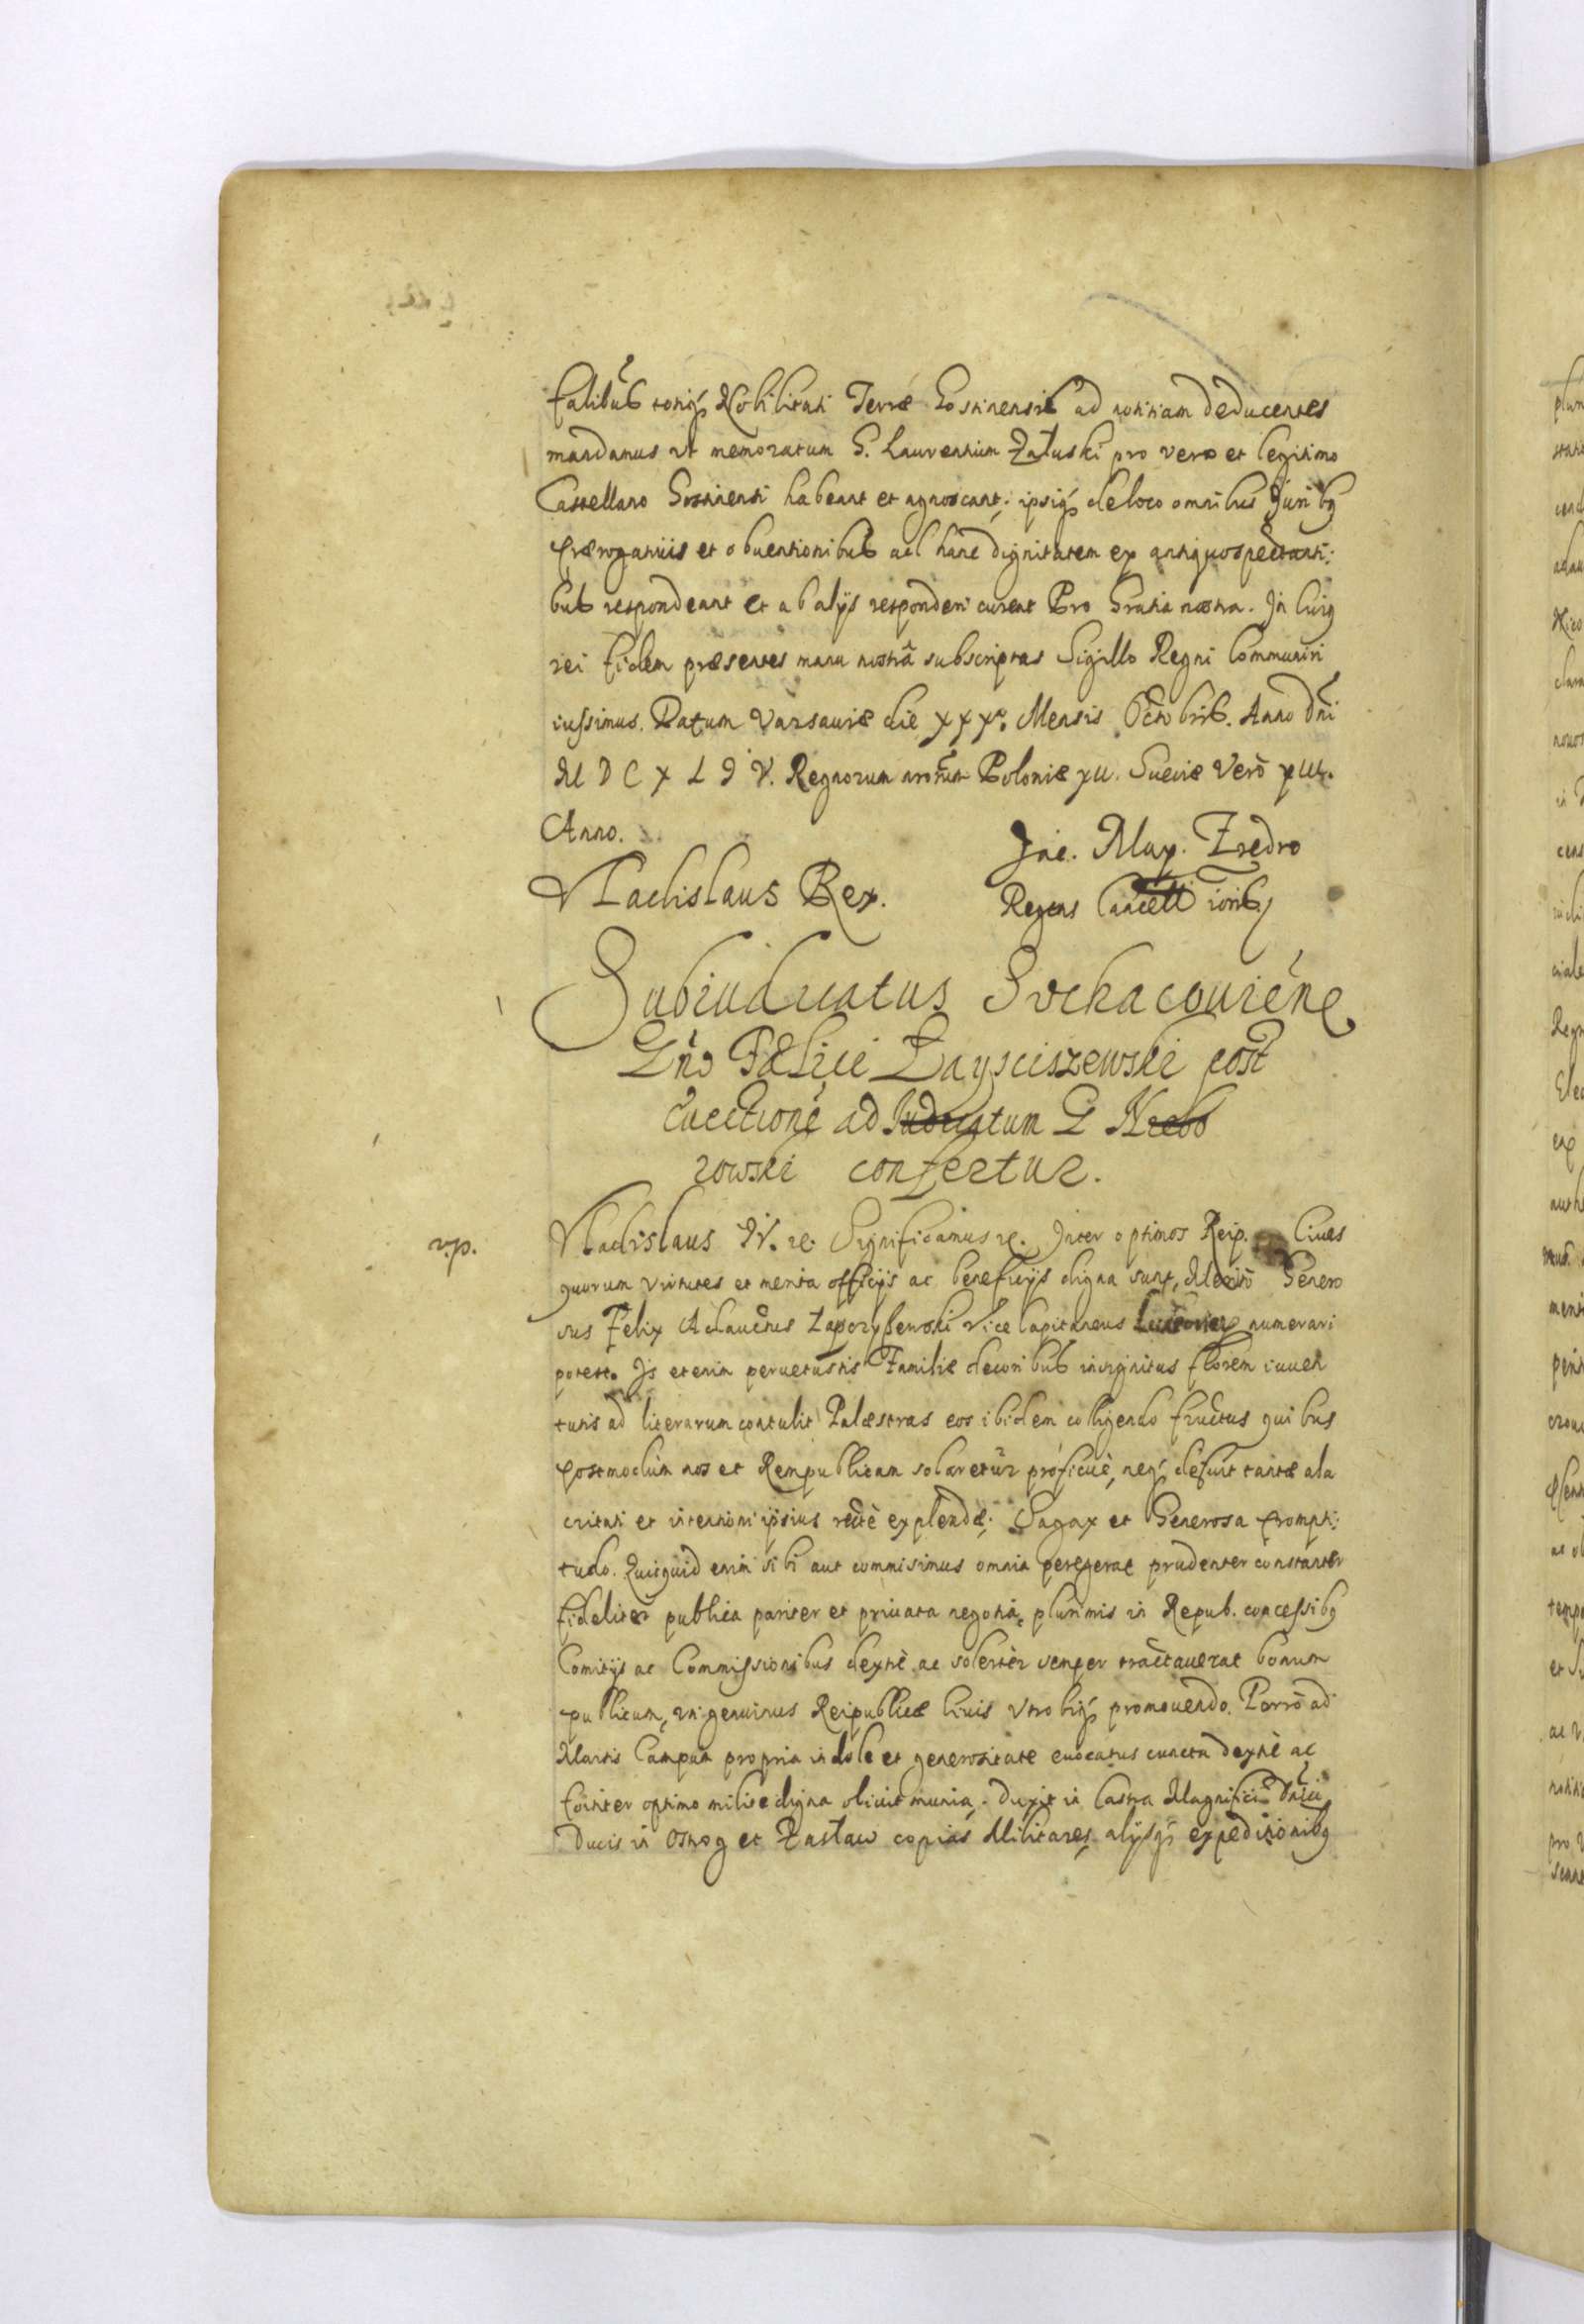 talibus totiq; Nobilitati Terræ Gostinensis ad notitiam deducentes
mandamus ut memoratum G. Laurentium Załuski pro vero et legitimo
Castellano Gostinensi habeant et agnoscant; ipsiq; de loco omnibus Juribq
Prærogatiuis et obuentionibus ad hanc dignitatem ex antiquo spectanti:
bus respondeant et ab alijs responderi curent Pro Gratia nostra. In Cuiq
rei fidem præsentes manu nostrâ subscriptas Sigillo Regni Communiri
iussimus. Datum Varsauiæ die XXXº Mensis Octobris. Anno Dñi
M D C X L I V. Regnorum nrorum Poloniæ XII. Sueciæ Verò XIII.
Anno.
Jac. Max. Fredro
Vladislaus Rex.
Regens Cancell
Subiudicatus Sochacouiene
Gño Fælici Zaysciszewski post
euectione ad Judicatum G
rowski confertur.
rp.
Vladislaus IV. etc. Significamus etc. Inter optimos Reip. Ciues
quorum virtutes et merita officijs ac beneficijs digna sunt, Meritò Genero
sus Felix Adauctus Vice Capitaneus numerari
potest. Is etenim peruetustis Familiæ decoribus insignitus florem iuuen
tutis ad literarum contulit Palæstras eos ibidem colligendo fructus quibus
postmodùm nos et Rempublicam solaretur proficuè, neq; defuit tantæ ala
critati et intentioni ipsius rectè explendæ; Sagax et Generosa prompti:
tudo. Quicquid enim sibi aut commisimus omnia peregerat prudenter constanter
fideliter publica pariter et priuata negotia, plurimis in Repub. concessibq
Comitijs ac Commissionibus dextrè ac solertèr semper tractauerat bonum
publicum, ingenuinus Reipublicæ Ciuis vtrobiq; promouendo. Porrò ad
Martis Campum propria indole et generositate euocatus cuncta dextrè ac
fortiter optimo milite digna obiuit munia. Duxit in Castra Magnifici Dñici
Ducis in Ostrog et Zasław copias Militares, alijsq; expeditionibq